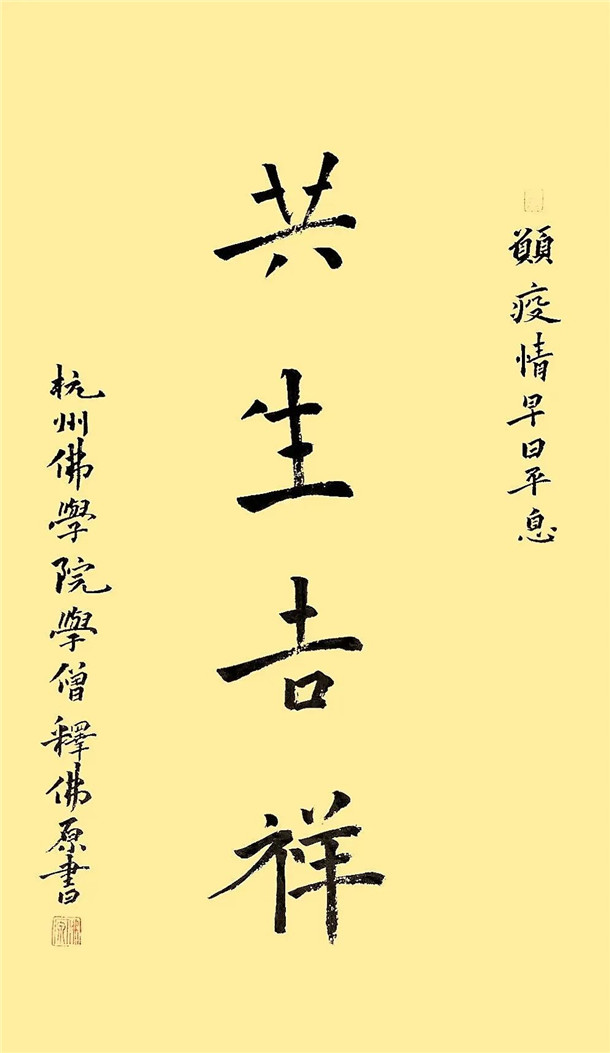 願疫情早日平息
共生吉祥
杭州佛學院學僧釋佛原書